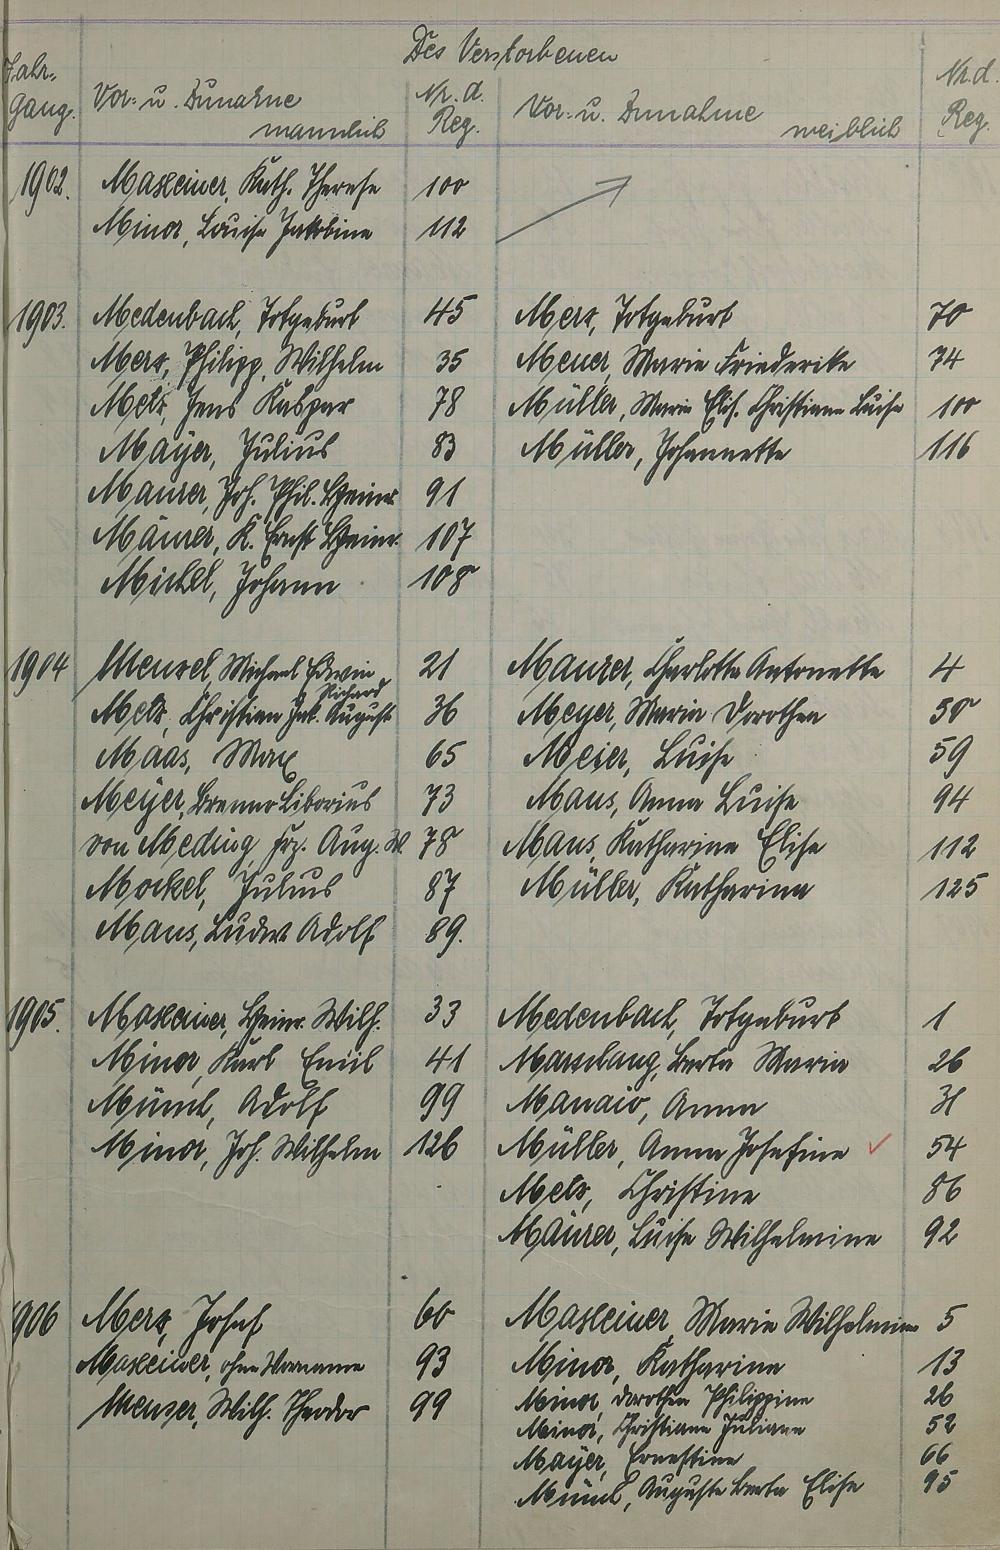 Des Verstorbenen
Jahr-
Gang. Vor- u. Zunahme männlich Nr. d. Reg. Vor- u. Zunahme weiblich Nr. d. Reg.
1902. Maxeiner, Kath. Therese 100
Minor, Louise Jakobine 112
1903. Medenbach, Totgeburt 45 Merz, Totgeburt 70
Merz, Philipp, Wilhelm 35 Meuer, Marie Friederike 74
Metz, Jens Kaspar 78 Müller, Marie Elis. Christiane Luise 100
Mayer, Julius 83 Müller, Johannette 116
Maurer, Joh. Phil. Heinr. 91
Mäurer, K. Ernst Heinr. 107
Michel, Johann 108
1904 Menzel, Michael Edwin Richard 21 Maurer, Charlotte Antonette 4
Metz, Christian Jak. August 36 Meyer, Maria Dorothea 50
Maas, Max 65 Meier, Luise 59
Meyer, Brenno Liborius 73 Maus, Anna Luise 94
von Meding, Frz. Aug. W. 78 Maus, Katharine Elise 112
Morkel, Julius 87 Müller, Katharina 125
Maus, Ludw. Adolf 89.
1905. Maxeiner, Heinr. Wilh. 33 Medenbach, Totgeburt 1
Minor, Karl Emil 41 Marschang, Berta Maria 26
Münch, Adolf 99 Anna 31
Minor, Joh. Wilhelm 126 Müller, Anna Josefine ✓ 54
Metz, Christine 86
Mäurer, Luise Wilhelmine 92
1906 Merz, Josef 60 Maxeiner, Marie Wilhelmine 5
Maxeiner, ohne Vorname 93 Minor, Katharina 13
Menser, Wilh. Theodor 99 Minor, Dorothea Philippine 26
Minor, Christiane Juliane 52
Mayer, Ernestine 66
Münch, Auguste Berta Elise 95